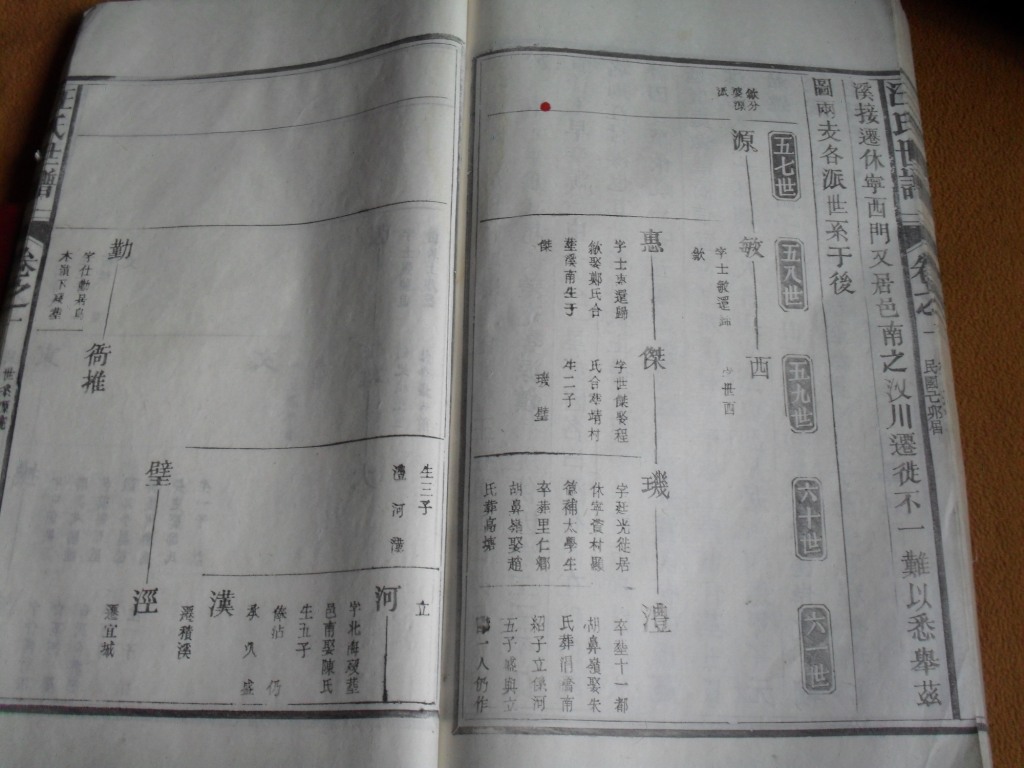 汪氏世譜
卷之一
民國己卯届
溪接遷休寧西門又居邑南之汊川遷徙不一難以悉舉茲
圖兩支各派世系于後
五七世
五八世
五九世
六十世
六一世
源
歙分
婺源
派
敏
字士敏還歸
歙
西
惠
字士惠還歸
歙娶鄭氏合
葬溪南生子
傑
傑
字世傑娶程
氏合葬靖村
生二子
璣 璧
璣
字廷光徙居
休寧資村縣
篁補太學生
卒葬里仁鄉
胡鼻嶺娶趙
氏葬高塘
生三子
澧 河 漢
澧
卒葬十一都
胡鼻嶺娶朱
氏葬
紹子立保河
五子咸與立
一人仍作
立
河
字北海
邑南娶陳氏
生五子
依 佑 仍
承 久 盛
漢
遷積溪
璧
涇
遷宜城
勤
字仕勤
衙推
汪氏世譜
卷之一